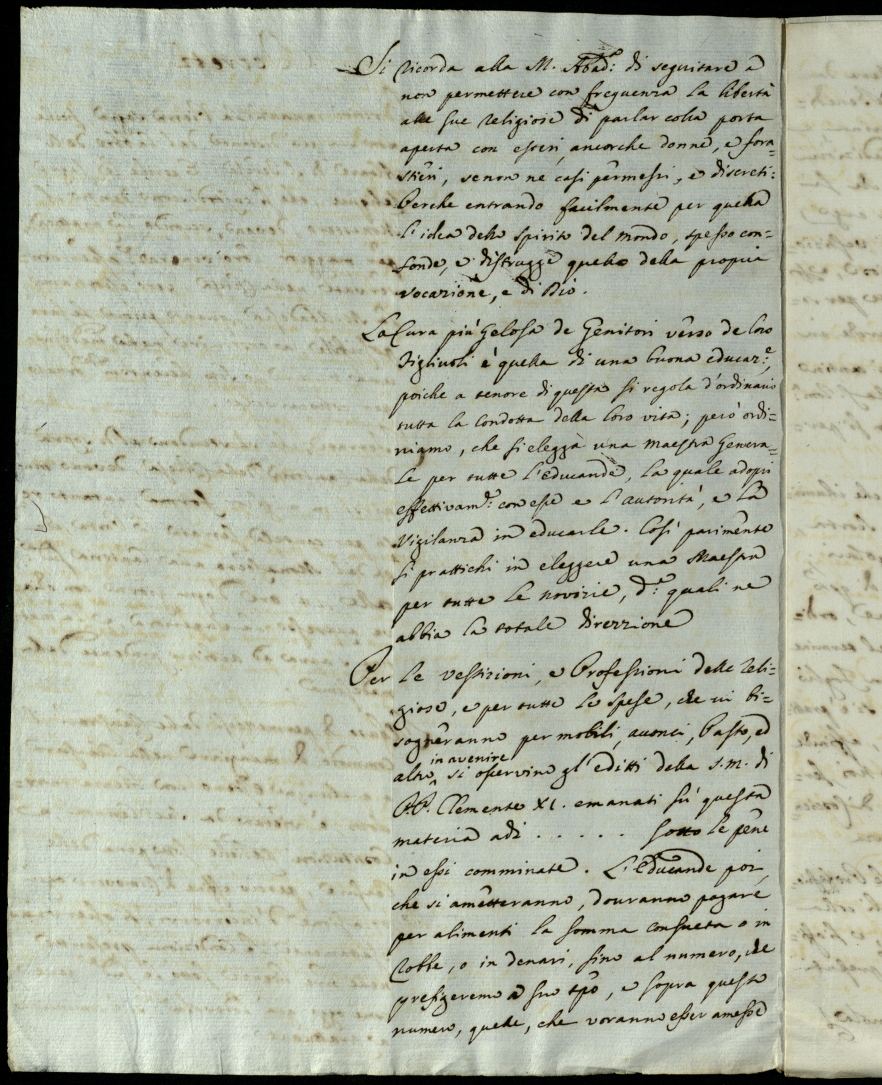 Si ricorda alla M. Abad: di seguitare a
non permettere con frequenza la libertà
alle sue religiose di parlar colla porta
aperta con esteri, ancorche donne, e fora=
stieri, se non ne casi permessi, e discreti:
Perche entrando facilmente per quella
l'idea dello spirito del mondo, spesso con=
fonde, e distrugge quello della propria
vocazione, e di Dio.
La Cura più gelosa de Genitori verso de loro
Figliuoli è quella di una buona educaz:e,
poiche a tenore di questa si regola d'ordinario
tutta la condotta della loro vita; però ordi=
niamo, che si elegga una maestra Genera=
le per tutte l'Educande, la quale adopri
effettivam:e con esse e l'autorità, e la
vigilanza in educarle. Così parimente
si prattichi in eleggere una Maestra
per tutte le novizie, d:e quali ne
abbia la totale direzzione
Per le vestizioni, e Professioni delle reli=
giose, e per tutte le spese, che vi bi=
sogneranno per mobili, aconci, Pasto, ed
altro, in avenire si osservino gl'editti della s.m. di
PP. Clemente XI. emanati sù questa
materia adi . . . . . sotto le pene
in essi comminate. L'Educande poi,
che si ametteranno, douranno pagare
per alimenti la somma consueta o in
robbe, o in denari, sino al numero, che
prefigeremo a suo tpo, e sopra questo
numero, quelle, che voranno esser amesse